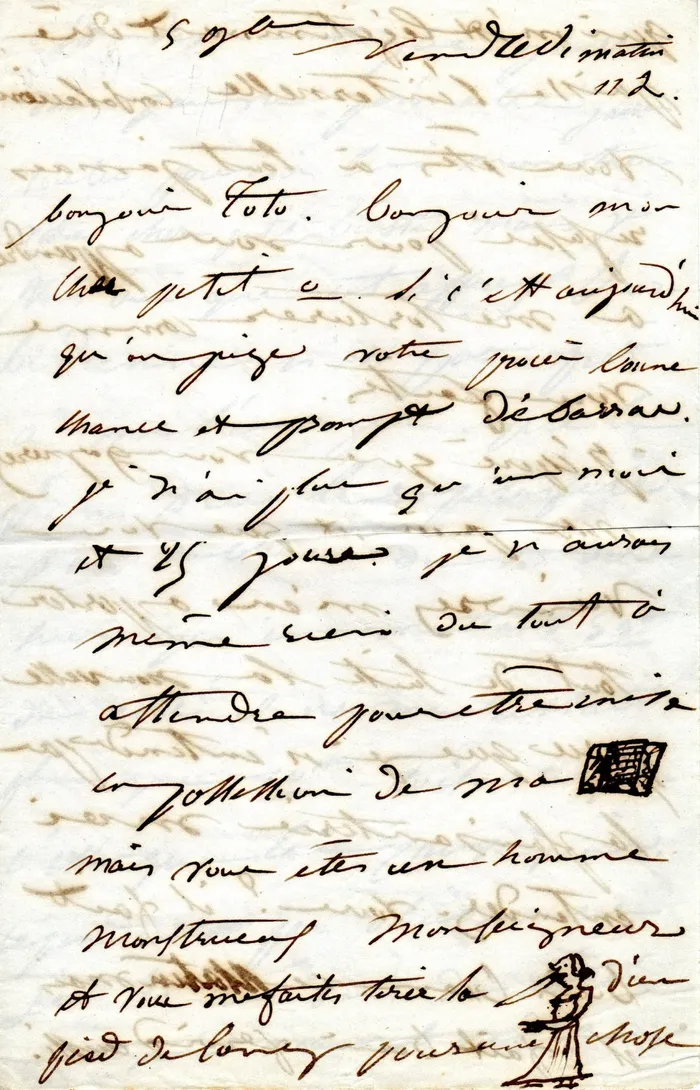 5 7bre Vendredi matin
11 h.
bonjour Toto. bonjour mon
cher petit o. Si c'est aujourd'hui
qu'on juge votre procès bonne
chance et prompt débarras.
je n'ai plus qu'un mois
et 25 jours. je n'aurais
même rien du tout à
attendre pour être mise
en possession de ma
mais vous êtes un homme
monstrueux Monseigneur
et vous me faites tirer la d'un
pied de long pour une chose